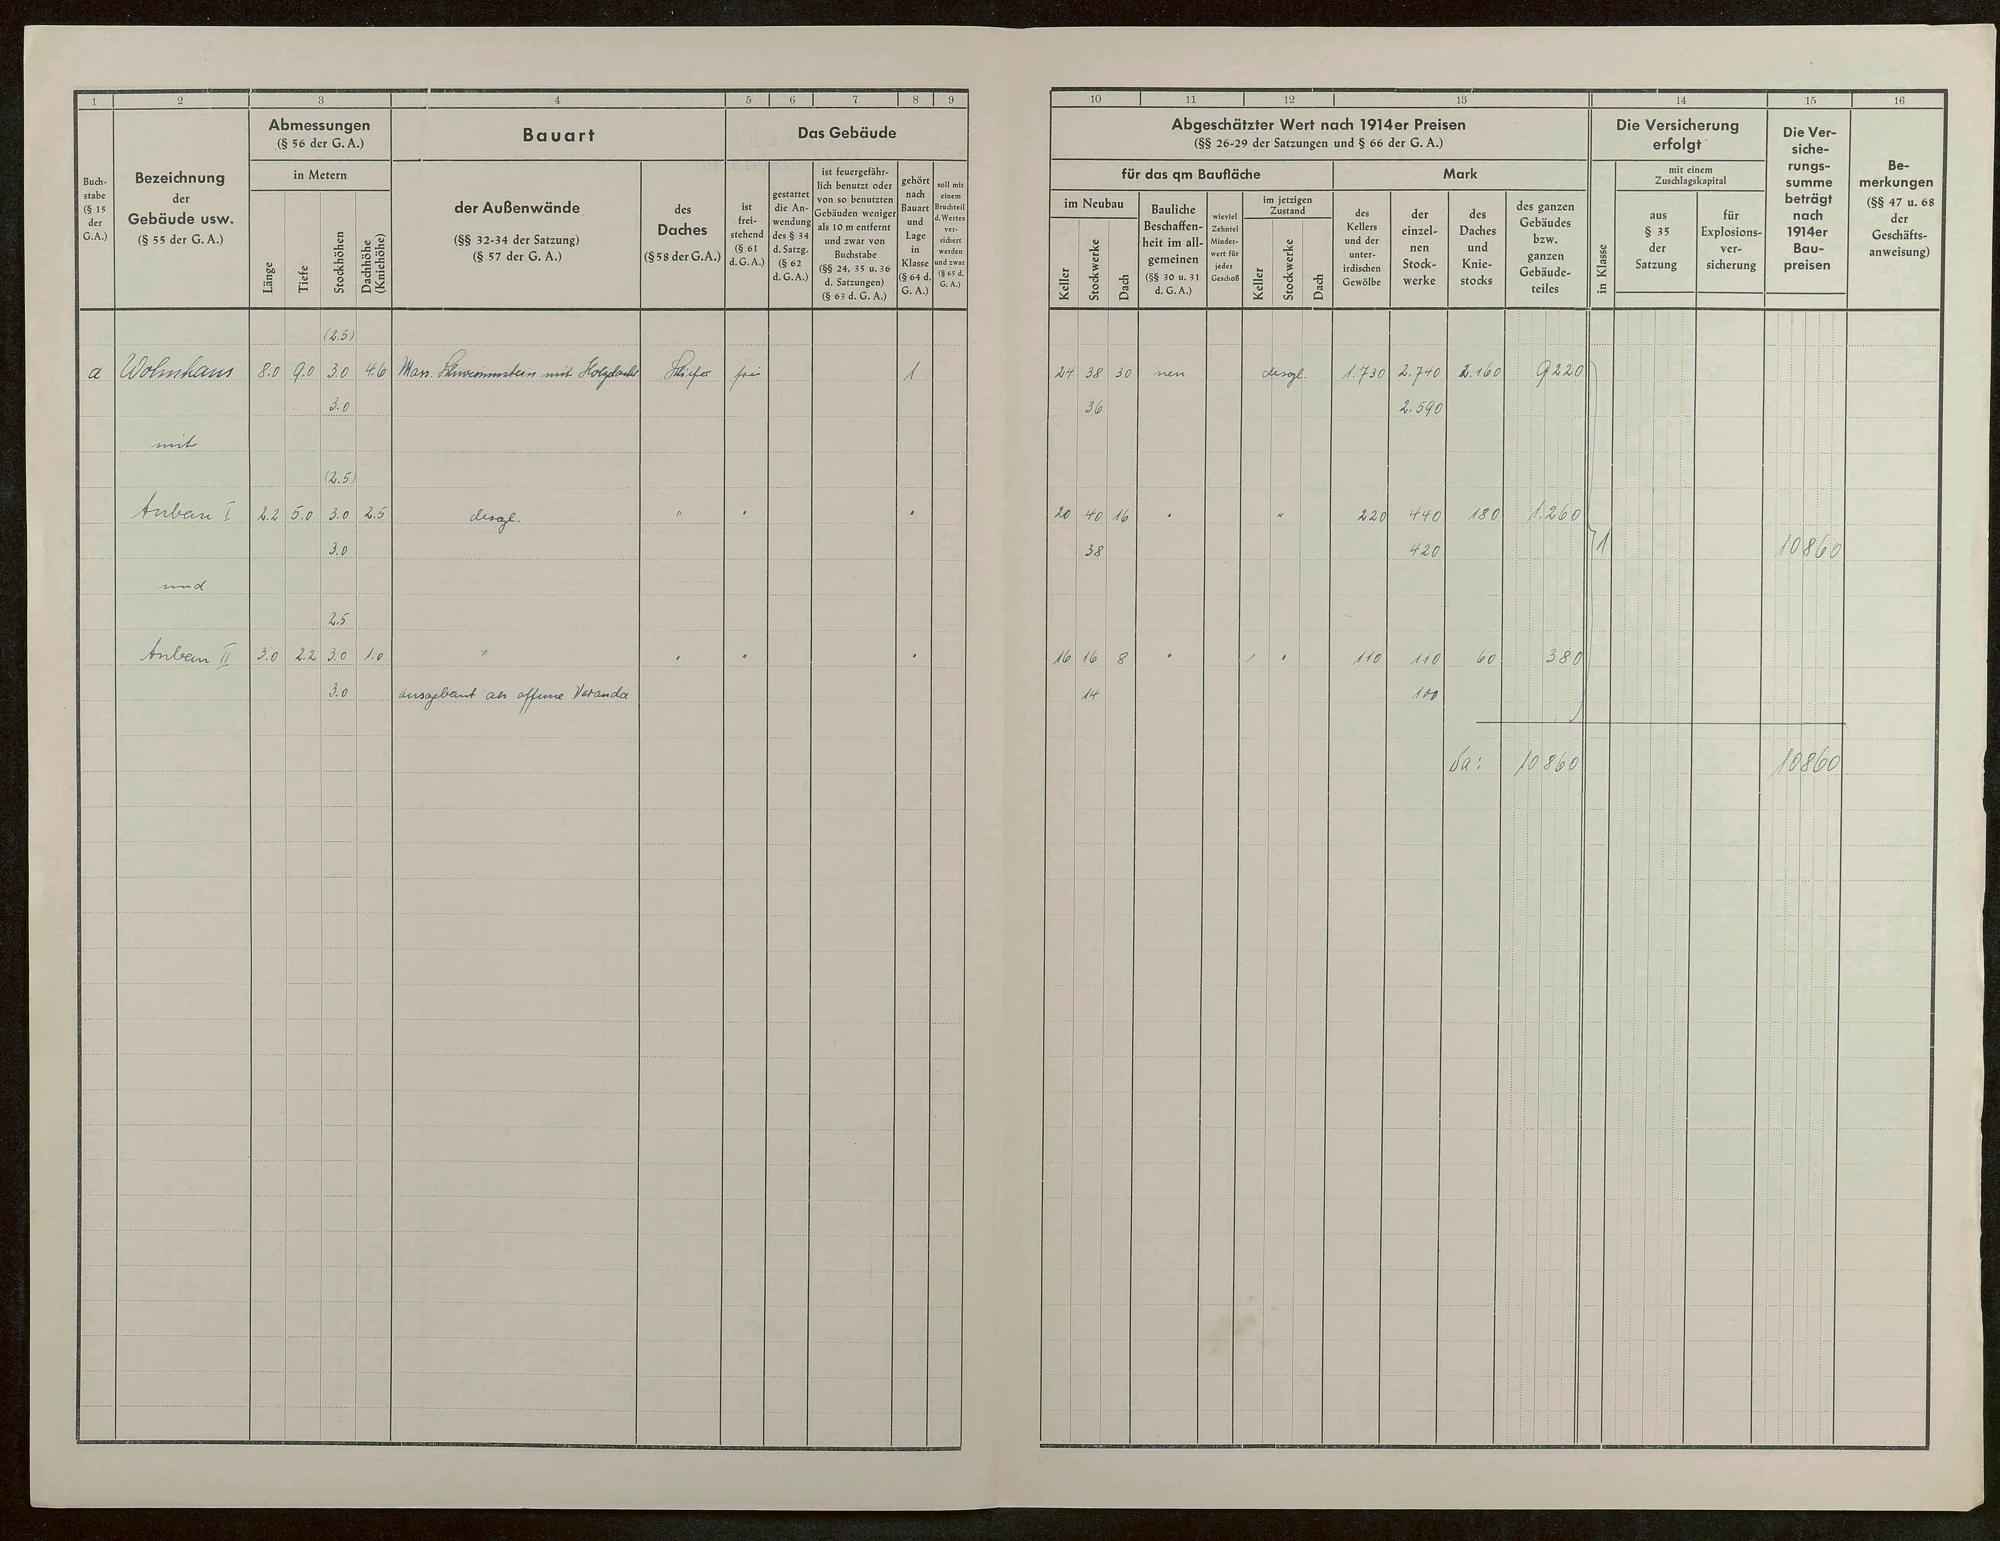 1 2 3 4 5 6 7 8 9
Buch-
stabe
(§ 15
der
G.A.)
Bezeichnung
der
Gebäude usw.
(§ 55 der G. A.)
Abmessungen
(§ 56 der G. A.)
in Metern
Länge
Tiefe
Stockhöhen
Dachhöhe
(Kniehöhe)
Bauart
der Außenwände
(§§ 32-34 der Satzung)
(§ 57 der G. A.)
des
Daches
(§ 58 der G. A.)
Das Gebäude
ist
frei-
stehend
(§ 61
d. G. A.)
gestattet
die An-
wendung
des § 34
d. Satzg.
(§ 62
d. G. A.)
ist feuergefähr-
lich benutzt oder
von so benutzten
Gebäuden weniger
als 10 m entfernt
und zwar von
Buchstabe
(§§ 24, 35 u. 36
d. Satzungen)
(§ 63 d. G. A.)
gehört
nach
Bauart
und
Lage
in
Klasse
(§ 64 d.
G. A.)
soll mit
einem
Bruchteil
d. Wertes
ver-
sichert
werden
und zwar
(§ 65 d.
G. A.)
(2.5)
a Wohnhaus 8.0 9.0 3.0 4.6 Mass. Schwemmstein mit Schiefer frei 1
3.0
mit
(2.5)
Anbau I 2.2 5.0 3.0 2.5 desgl. " " "
3.0
und
2.5
Anbau II 3.0 2.2 3.0 1.0 " " " "
3.0 ausgebaut als offene Veranda
10 11 12 13 14 15 16
Abgeschätzter Wert nach 1914er Preisen
(§§ 26-29 der Satzungen und § 66 der G. A.)
für das qm Baufläche
im Neubau
Keller
Stockwerke
Dach
Bauliche
Beschaffen-
heit im all-
gemeinen
(§§ 30 u. 31
d. G. A.)
wieviel
Zehntel
Minder-
wert für
jedes
Geschoß
im jetzigen
Zustand
Keller
Stockwerke
Dach
Mark
des
Kellers
und der
unter-
irdischen
Gewölbe
der
einzel-
nen
Stock-
werke
des
Daches
und
Knie-
stocks
des ganzen
Gebäudes
bzw.
ganzen
Gebäude-
teiles
Die Versicherung
erfolgt
in Klasse
mit einem
Zuschlagskapital
aus
§ 35
der
Satzung
für
Explosions-
ver-
sicherung
Die Ver-
siche-
rungs-
summe
beträgt
nach
1914er
Bau-
preisen
Be-
merkungen
(§§ 47 u. 68
der
Geschäfts-
anweisung)
24 38 30 neu desgl. 1.730 2.740 2.160 9220
36 2.590
20 40 16 " " 220 440 180 1.260
38 420 1 10860
16 16 8 " " 110 110 60 380
14 100
Sa: 10860 10860